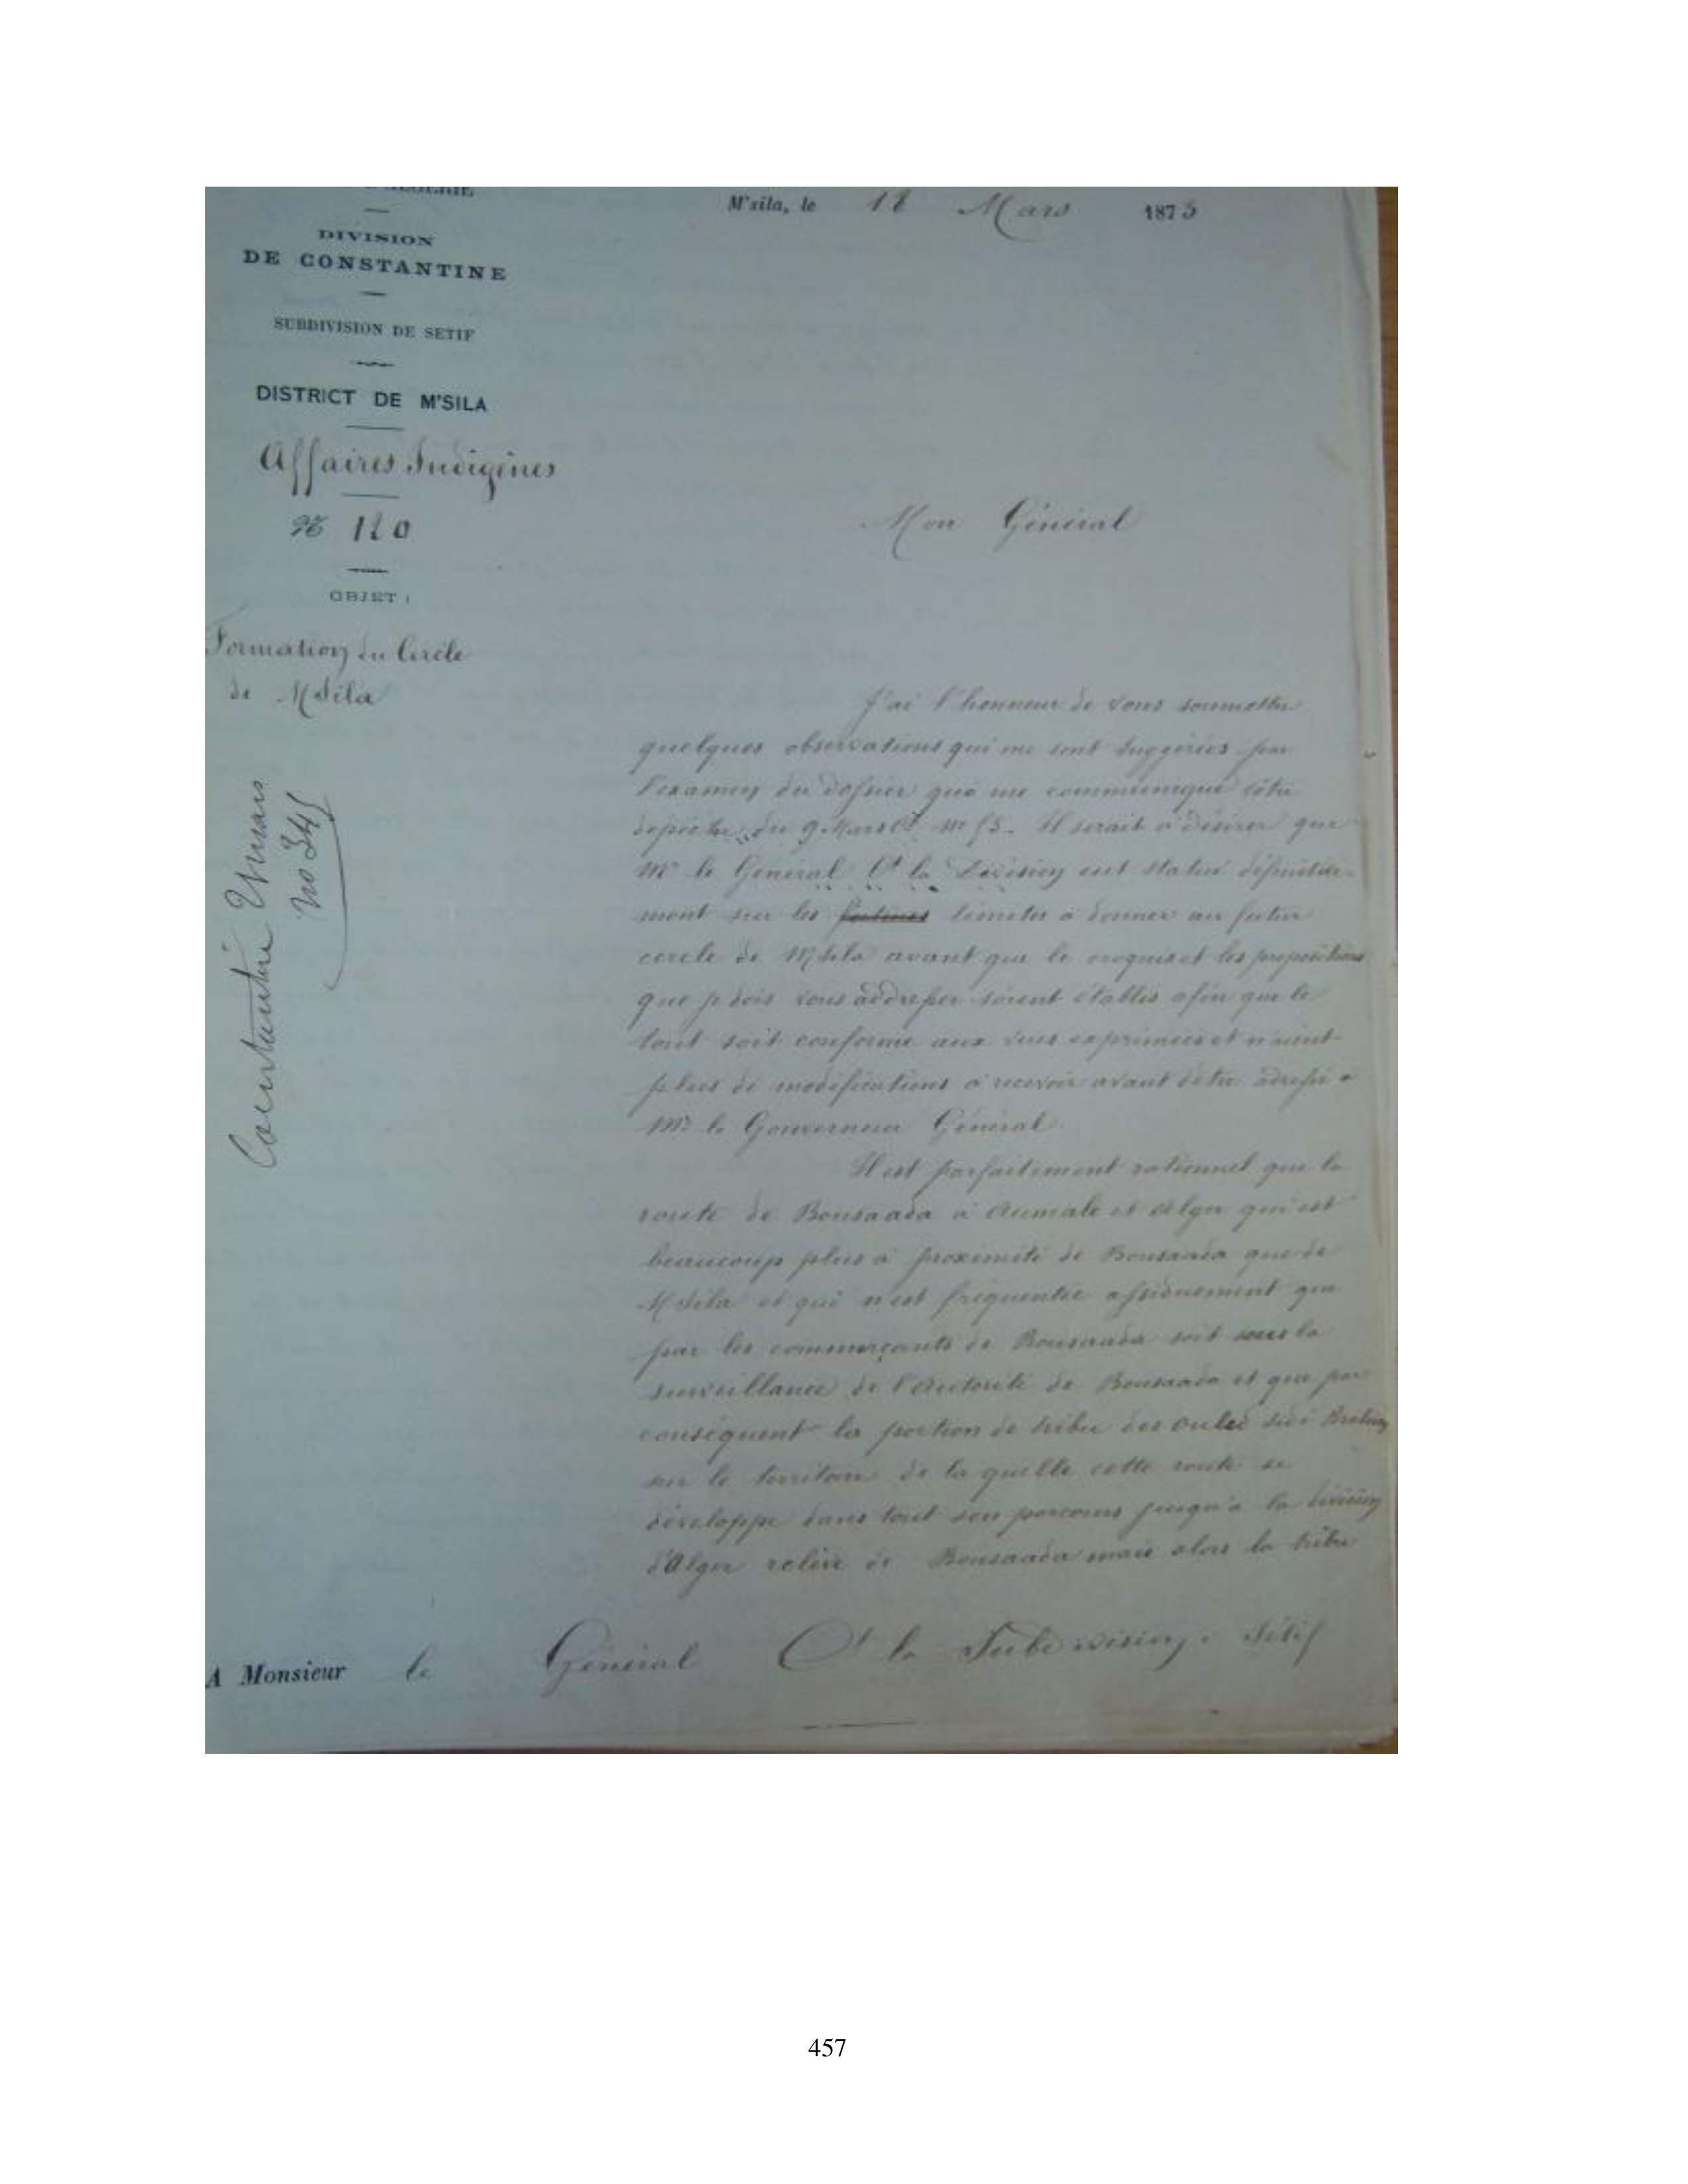 M'sila, le 18 Mars 1875
DIVISION
DE CONSTANTINE
SUBDIVISION DE SETIF
DISTRICT DE M'SILA
Affaires Indigènes
OBJET :
Formation du Cercle
de M'Sila
no 345
Mon Général
J'ai l'honneur de vous soumettre
quelques observations qui me sont suggérées par
l'examen du dossier qu'a me communiqué votre
dépêche du 9 Mars Ct
Mr le Général Ct la Division eut statué définitive-
ment sur les limites à donner au futur
cercle de M'sila avant que le croquis et les propositions
que je dois vous addresser soient établis afin que le
tout soit conforme aux vues exprimées et n'aient
plus de modifications à recevoir avant d'être adressé à
Mr le Gouverneur Général
Il est parfaitement rationnel que la
route de Bousaada à Aumale et Alger qui est
beaucoup plus à proximité de Bousaada que de
M'Sila et qui n'est fréquentée assiduement que
par les commerçants de Bousaada soit sous la
surveillance de l'Autorité de Bousaada et que par
conséquent la portion de tribu des Ouled Sidi
sur le territoire de la quelle cette route se
développe dans tout son parcours jusqu'à la division
d'Alger relève de Bousaada mais alors la tribu
A Monsieur le Général Ct la Subdivision. Sétif
457